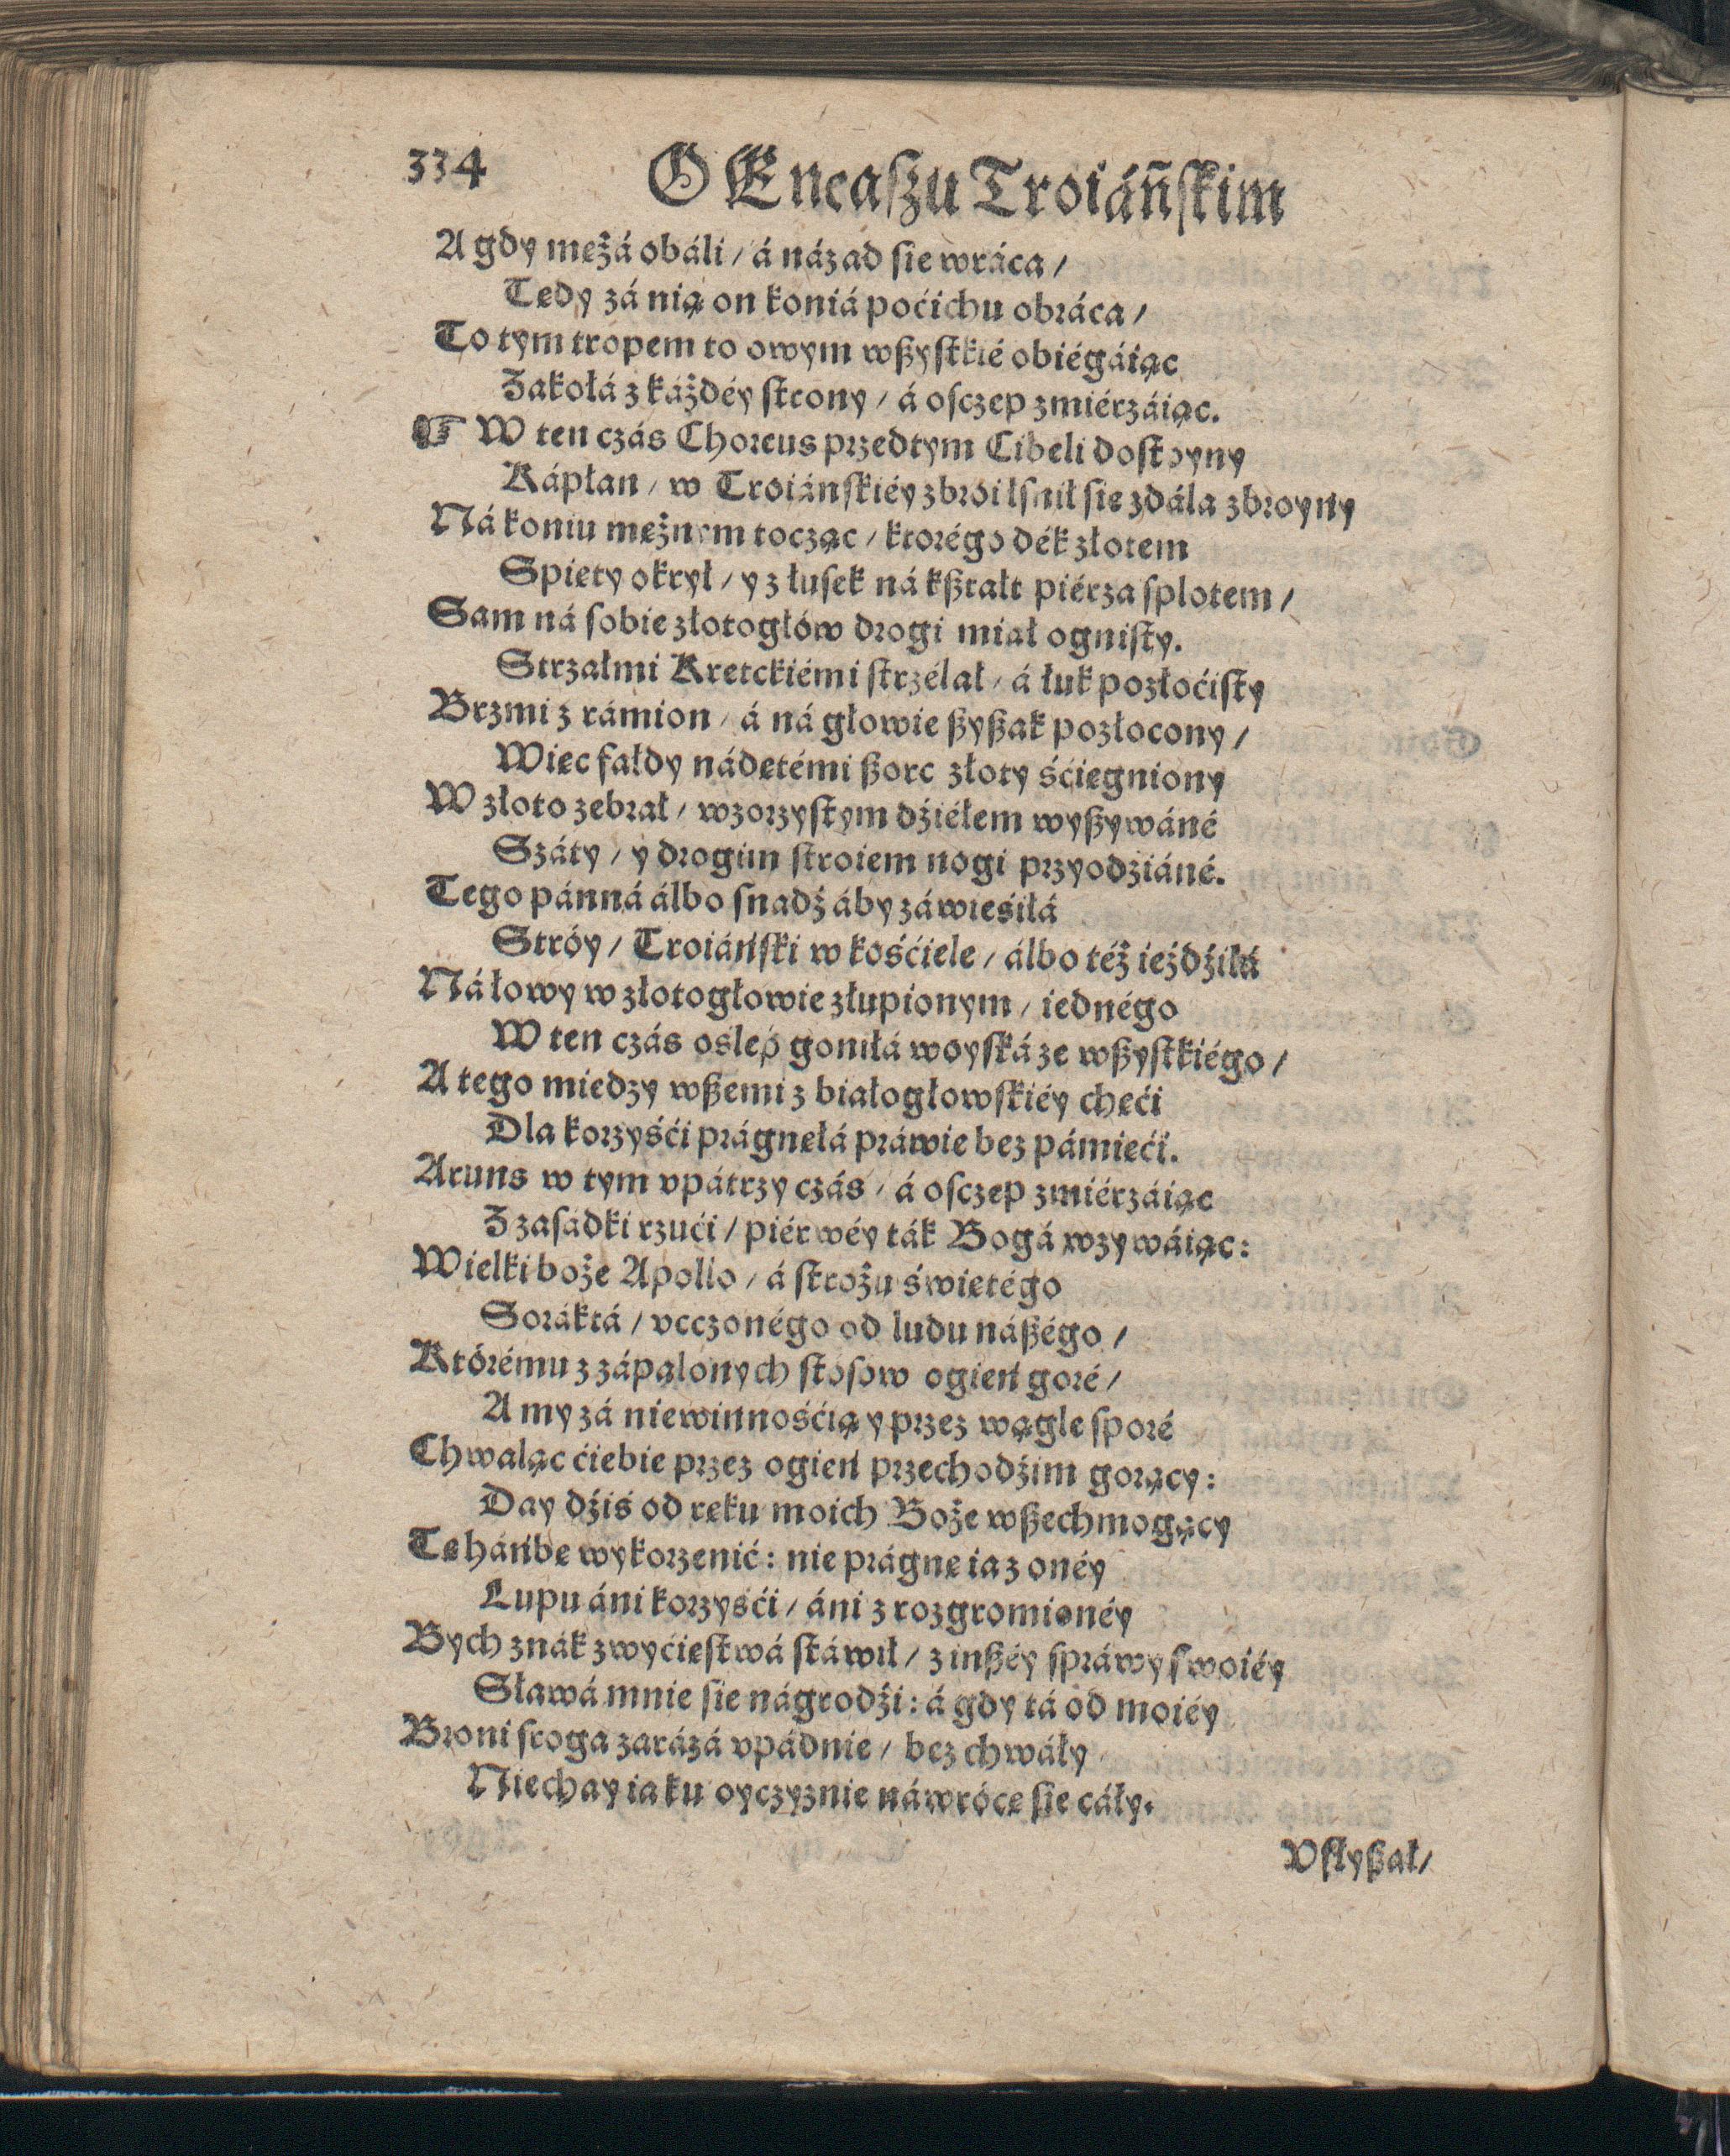 334
O Eneaszu Troiáńskim
A gdy mężá obáli / á názad sie wráca /
Tedy zá nią on koniá poćichu obráca /
To tym tropem to owym wßystkié obiégáiąc
Zakołá z káżdéy strony / á osczep zmiérzáiąc.
☞ W ten czás Choreus przedtym Cibeli dostoyny
Kápłan / w Troiánskiéy zbroi lsnił się zdála zbroyny
Ná koniu mężnym tocząc / ktorégo dék złotem
Spięty okrył / y z łusek ná kßtałt piérza splotem /
Sam ná sobie złotogłów drogi miał ognisty.
Strzałmi Kretckiémi strzélał / á łuk pozłoćisty
Brzmi z rámion / á ná głowie ßyßak pozłocony /
Więc fałdy nádętémi ßorc złoty śćiągniony
W złoto zebrał / wzorzystym dźiéłem wyßywáné
Száty / y drogim stroiem nogi przyodźiáné.
Tego pánná álbo snadź áby záwieśiłá
Stróy / Troiáński w kośćiele / álbo téż ieźdźiłá
Ná łowy w złotogłowie złupionym / iednégo
W ten czás oślep goniłá woyská ze wßystkiégo /
A tego miedzy wßemi z białogłowskiéy chęći
Dla korzyśći prágnęłá práwie bez pámięći.
Aruns w tym vpátrzy czás / á osczep zmiérzáiąc
Z zasadki rzući / piérwéy ták Bogá wzywáiąc:
Wielki boże Apollo / á strożu świętégo
Soráktá / vcczonégo od ludu náßégo /
Którému z zápalonych stosow ogień goré /
A my zá niewinnośćią y przez wągle sporé
Chwaląc ćiebie przez ogień przechodźim gorący:
Day dźiś od ręku moich Boże wßechmogący
Tę háńbę wykorzenić: nie prágnę ia z onéy
Łupu áni korzyśći / áni z rozgromionéy
Bych znák zwyćięstwá stáwił / z inßéy spráwy swoiéy
Sławá mnie się nágrodźi: á gdy tá od moiéy
Broni sroga zarázá vpádnie / bez chwáły
Niechay ia ku oyczyznie náwrócę się cáły.
Vslyßał /